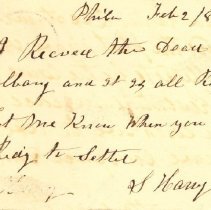 Phila Feb 2/8
I Receved the Deed
Albany and it is all
Let me Know When you
Redy to Settle
S Harry